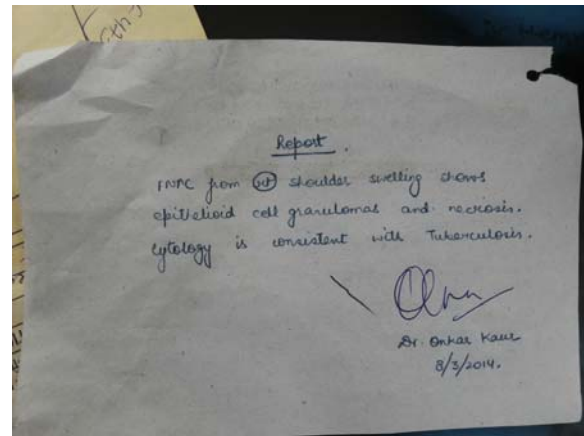 Report.
FNAC from shoulder swelling shows
epithelioid cell granulomas and necrosis.
Cytology is consistent with Tuberculosis.
Dr. Onkar Kaur
8/3/2014.